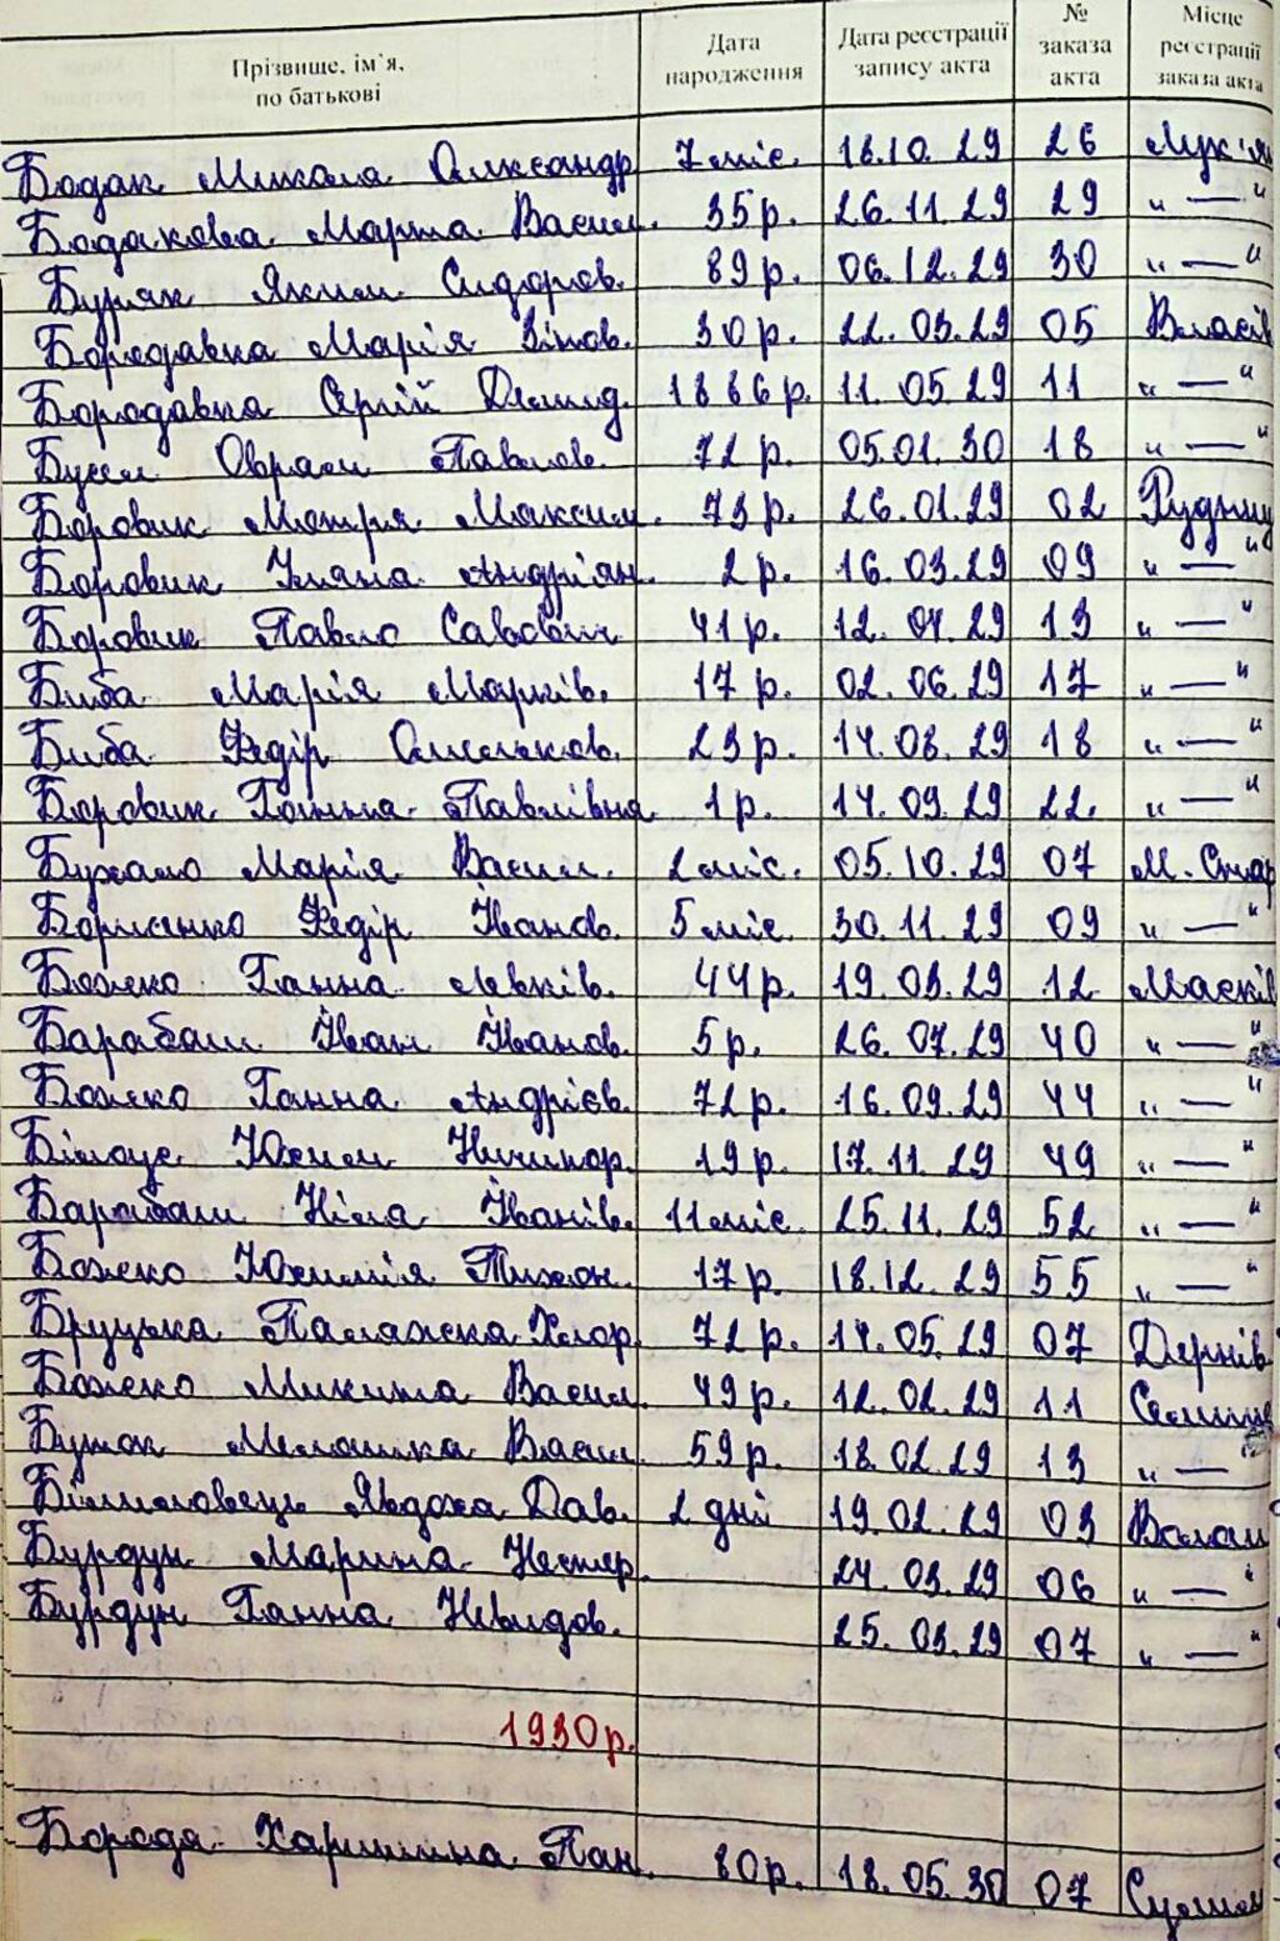 Прізвище, ім'я, по батькові Дата народження Дата реєстрації запису акта № заказа акта Місце реєстрації заказа акта
Бодак Микола Олександр 7 міс. 18.10.29 26 Лук'я
Бодакова Марта Васил. 35 р. 26.11.29 29 " — "
Буряк Яким Сидоров. 89 р. 06.12.29 30 " — "
Бородавка Марія Зінов. 30 р. 22.03.29 05 Власів
Бородавка Сергій Демид. 1886 р. 11.05.29 11 " — "
Бусел Оврам Павлов. 72 р. 05.01.30 18 " — "
Боровик Мотря Максим. 73 р. 26.01.29 02 Рудниц
Боровик Уляна Андріян. 2 р. 16.03.29 09 " — "
Боровик Павло Савович 41 р. 12.04.29 13 " — "
Биба Марія Марків. 17 р. 02.06.29 17 " — "
Биба Федір Омельков. 23 р. 14.08.29 18 " — "
Боровик Ганна Павлівна 1 р. 14.09.29 22. " — "
Бухало Марія Васил. 2 міс. 05.10.29 07 М. Стар
Борисенко Федір Іванов. 5 міс. 30.11.29 09 " — "
Божко Ганна Левків. 44 р. 19.03.29 12 Масків
Барабаш Іван Іванов. 5 р. 26.07.29 40 " — "
Божко Ганна Андрієв. 72 р. 16.09.29 44 " — "
Білоус Юхим Ничипор. 19 р. 17.11.29 49 " — "
Барабаш Ніла Іванів. 11 міс. 25.11.29 52 " — "
Божко Юхимія Тихон. 17 р. 18.12.29 55 " — "
Бруцька Палажка Хлор. 72 р. 14.05.29 07 Дернів
Божко Микита Васил. 49 р. 12.02.29 11 Селище
Меланка Васил. 59 р. 18.02.29 13 " — "
Явдоха Дав. 2 дні 19.02.29 03 Волош
Бурдун Марина Нестер. 24.03.29 06 " — "
Бурдун Ганна 25.03.29 07 " — "
1930 р.
Борода Харитина Пан. 80 р. 18.05.30 07